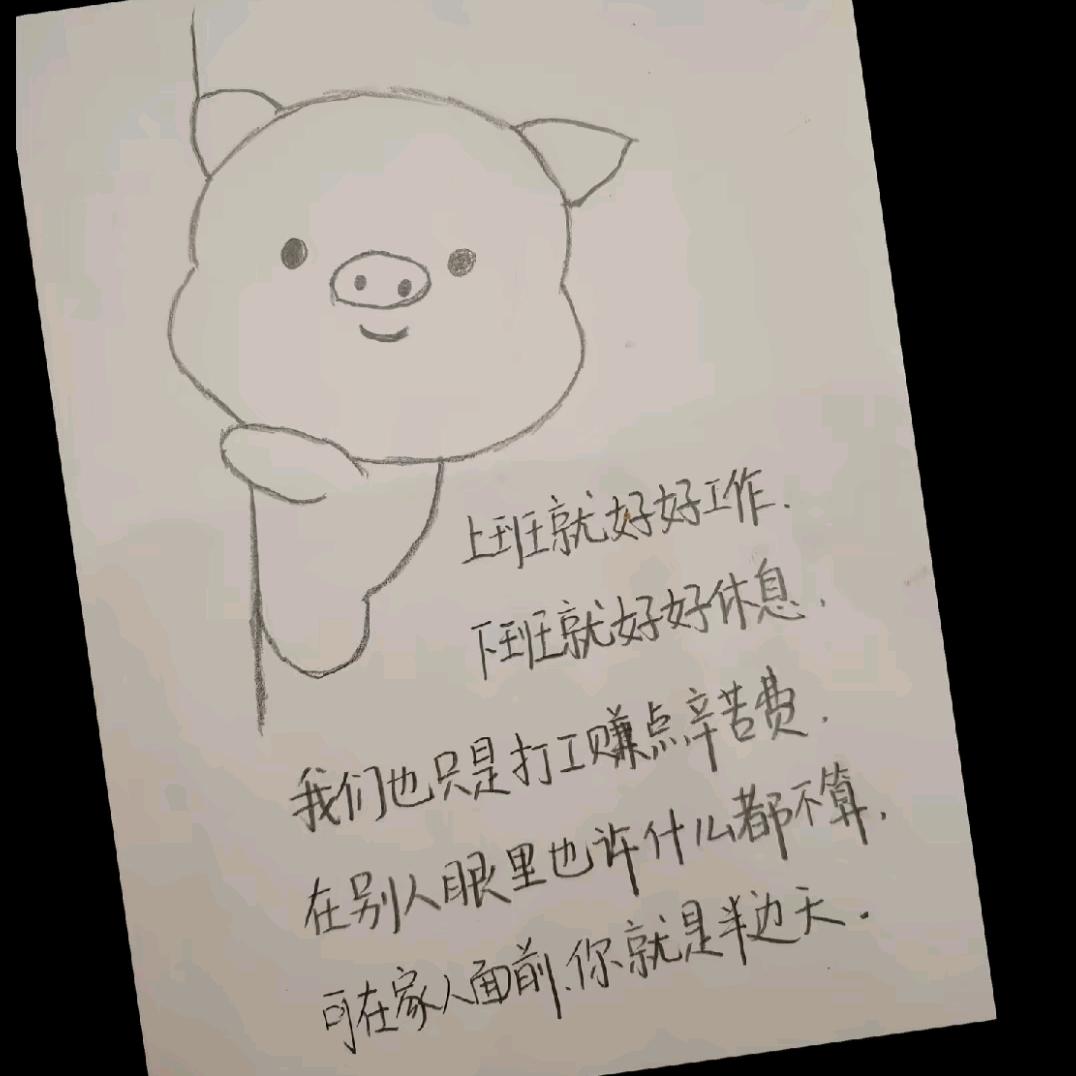 上班就好好工作.
下班就好好休息.
我们也只是打工赚点辛苦费.
在别人眼里也许什么都不算.
可在家人面前.你就是半边天.